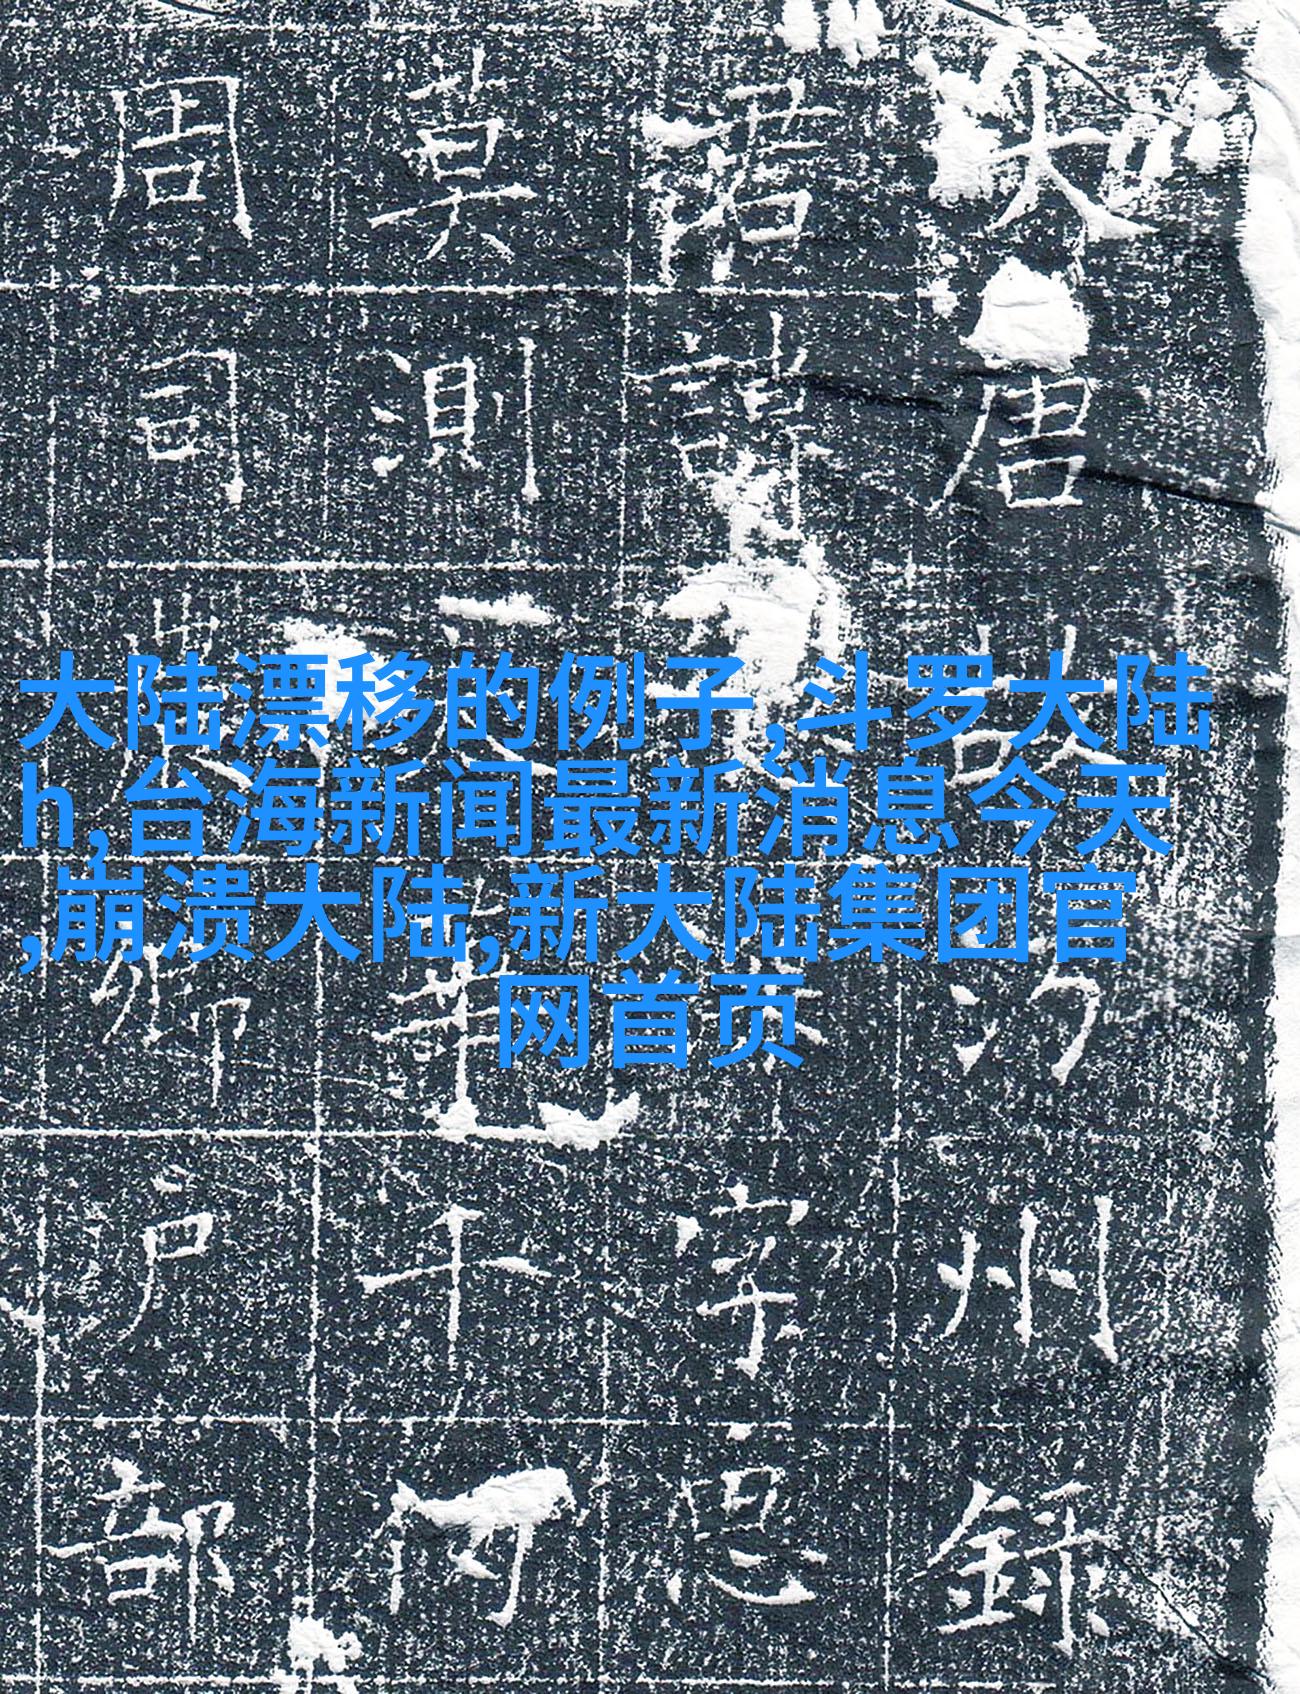 大陆漂移的例子,斗罗大陆
h,台海新闻最新消息今天
,崩溃大陆,新大陆集团官
网首页
大唐故汾州錄
君諱字
莫測千
周司農卿戶部